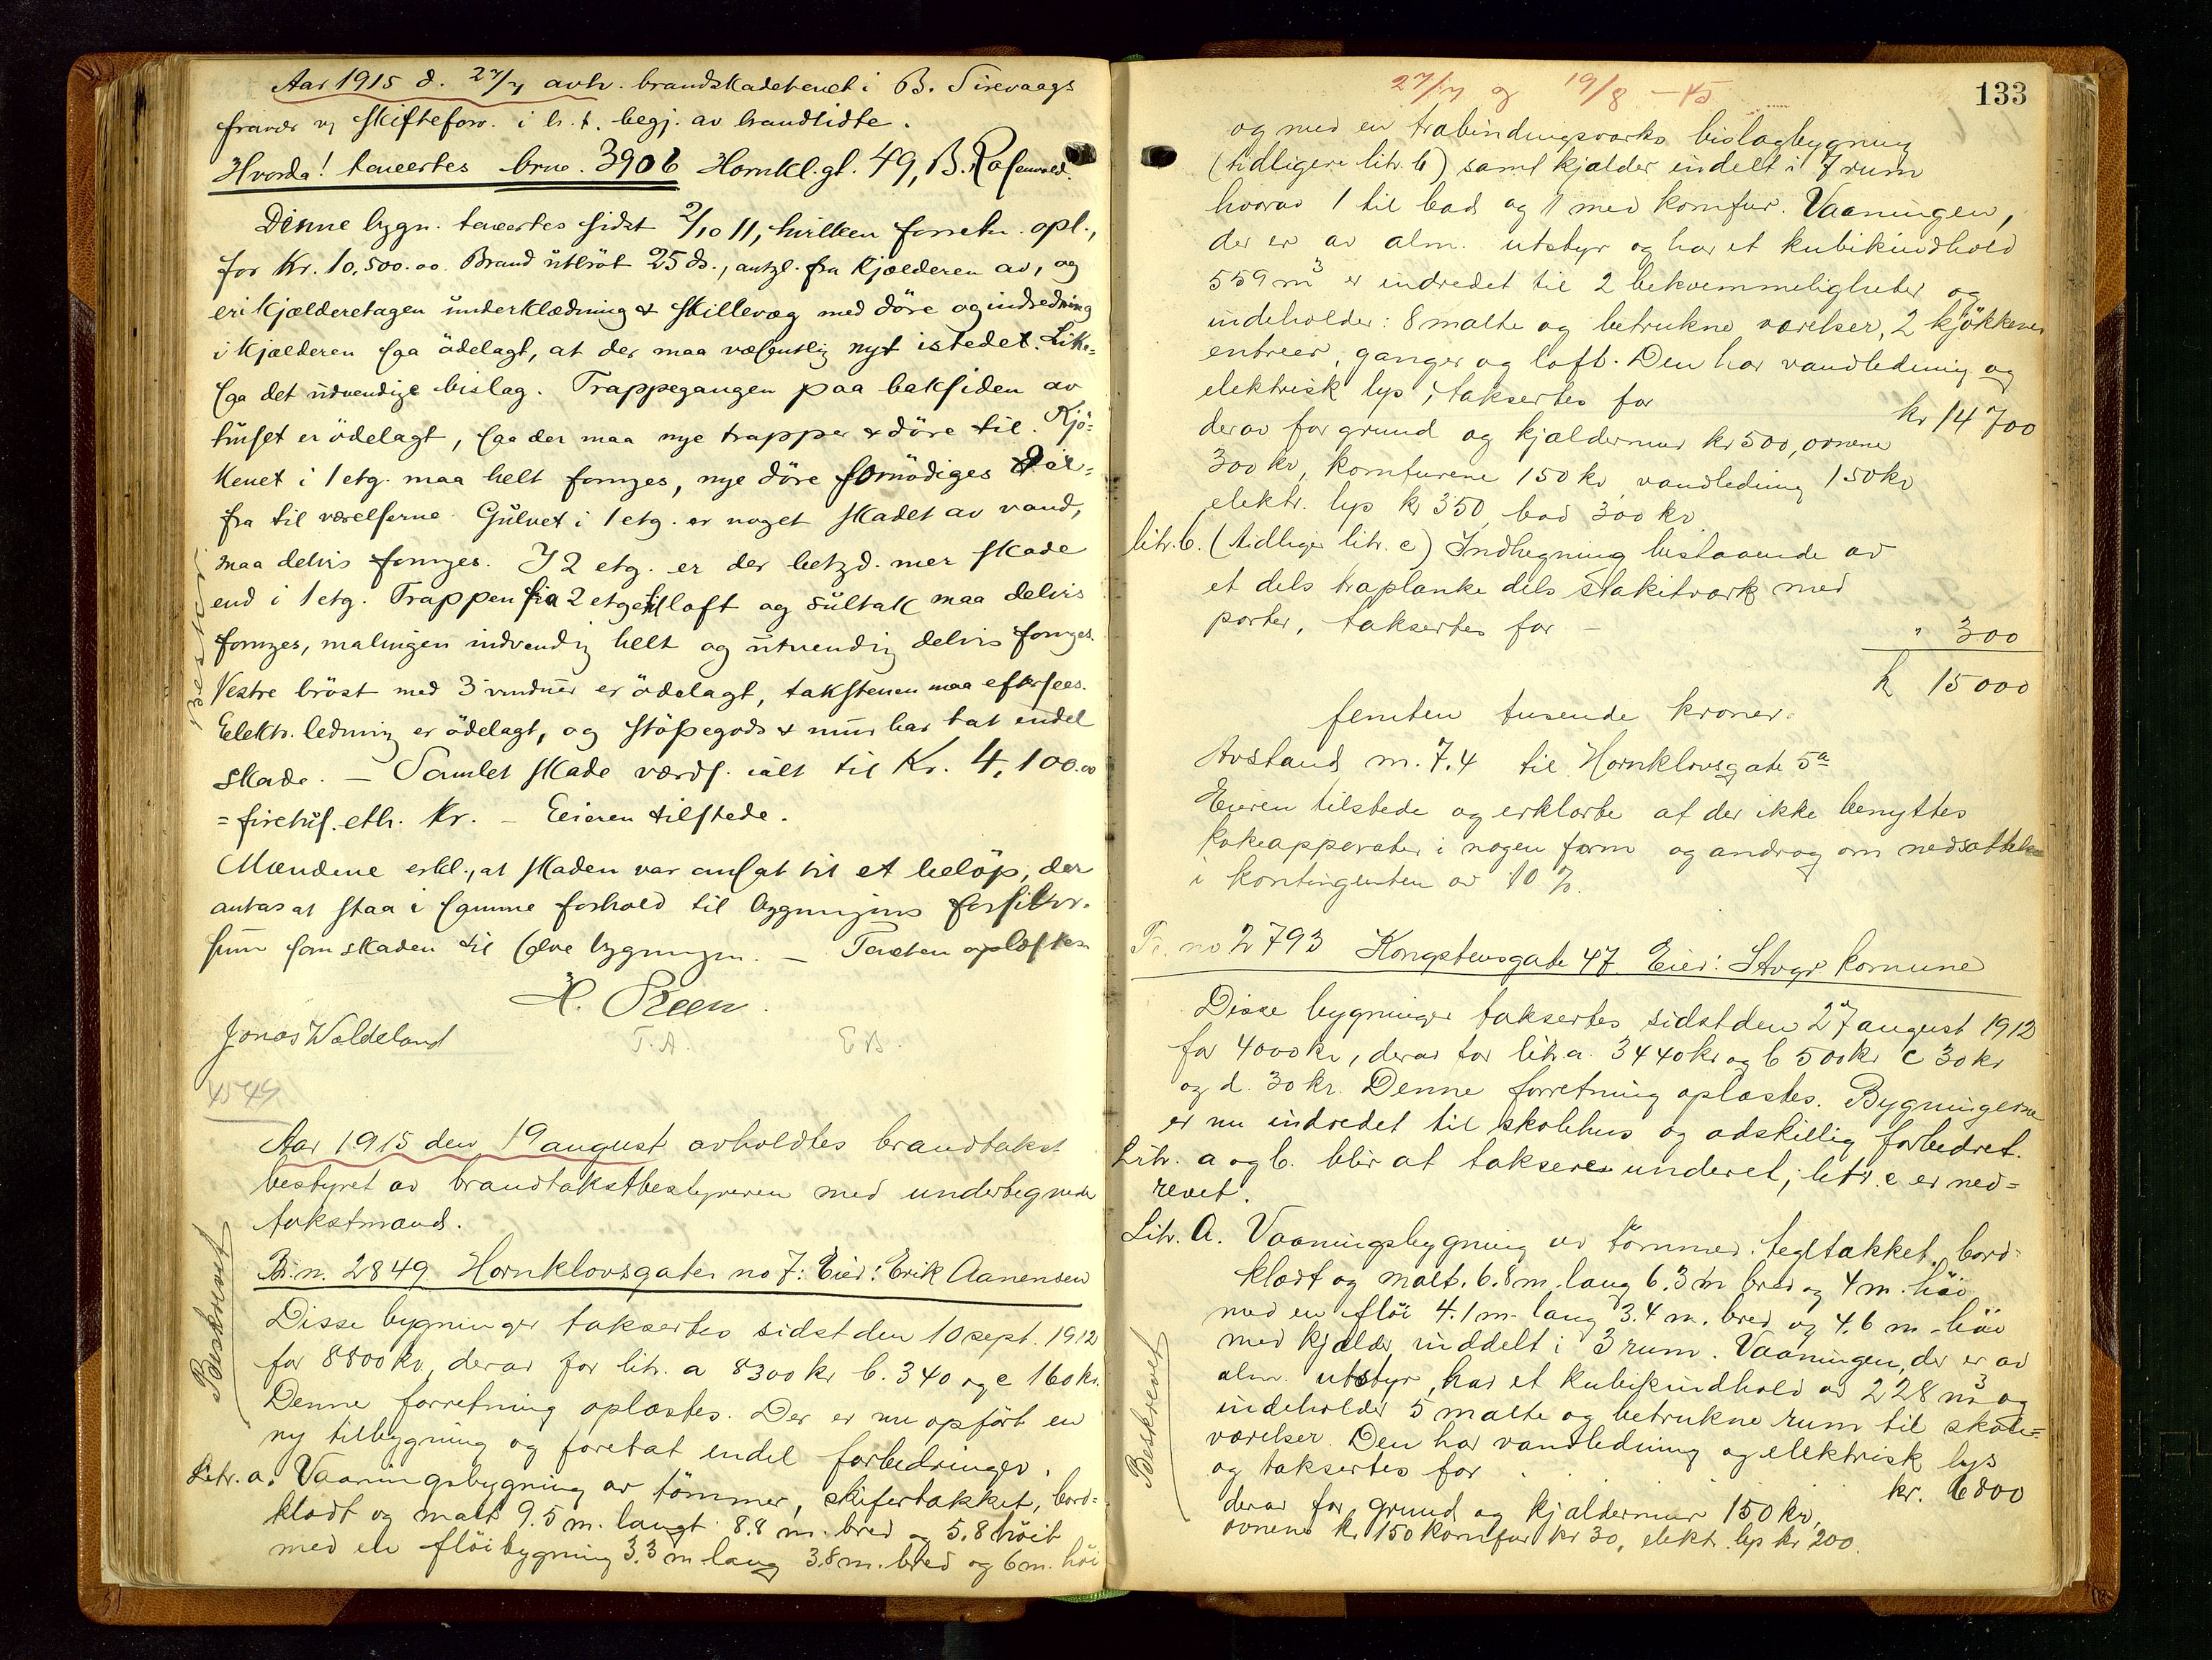 Aar 1915 d. 27/7 avh. brandskadetaxt i B. Sirevaags
fravær v/ skifteforv. i h. t. begj. av brandlidte.
Hvorda! taxertes brno. 3906 Hornkl.gt. 49, B. Rosenvold.
Denne bygn. taxertes sidst 2/10 11, hvilken forretn. opl.,
for Kr. 10,500.00. Brand utbröt 25 ds., antgl. fra Kjælderen av, og
er i Kjælderetagen underklædning & skillevæg med döre og indredning
i Kjælderen saa ödelagt, at der maa væsentlig nyt istedet. Like-
saa det udvendige bislag. Trappegangen paa baksiden av
huset er ödelagt, saa der maa nye trapper & döre til. Kjö-
kenet i 1 etg. maa helt fornyes, nye döre fornödiges der-
fra til værelserne. Gulvet i 1 etg. er noget skadet av vand,
maa delvis fornyes. I 2 etg. er der betyd. mer skade
end i 1 etg. Trappen fra 2 etg til loft og sultak maa delvis
fornyes, malingen indvendig helt og utvendig delvis fornyes.
Vestre bröst med 3 vinduer er ödelagt, takstenen maa eftersees.
Elektr. ledning er ödelagt, og stöpegods & mur har tat endel
skade. — Samlet skade værds. ialt til Kr. 4,100.00
= firetus. eth. Kr. — Eieren tilstede.
Mændene erkl., at skaden var ansat til et belöp, der
antas at staa i samme forhold til bygningens forsikr.
sum som skaden til selve bygningen. — Taxten oplæstes.
H. Steen
Jonas Waldeland T. A. E B.
4549
Aar 1915 den 19 august avholdtes brandtakst
bestyret av brandtakstbestyreren med undertegnede
takstmænd.
Br. n. 2849 Hornklovsgaten no 7: Eier: Erik Aanensen
Beskrevet
Disse bygninger taksertes sidst den 10 sept. 1912
for 8800 kr, derav for litr. a 8300 kr b. 340 og c 160 kr.
Denne forretning oplæstes. Der er nu opført en
ny tilbygning og foretat endel forbedringer.
Litr. a. Vaaningsbygning av tömmer, skifertakket, bord-
klædt og malt 9.5 m. langt 8.8 m. bred og 5.8 höit
med en flöibygning 3.3 m lang 3.8 m. bred og 6 m. höi
27/7 og 19/8 - 15
133
og med en træbindingsverks bislagbygning
(tidligere litr. b) samt kjælder indelt i 7 rum
hvorav 1 til bad og 1 med komfur. Vaaningen,
der er av alm. utstyr og har et kubikindhold
559 m3 er indredet til 2 bekvemmeligheter og
indeholder: 8 malte og betrukne værelser, 2 kjökkener
entreer, ganger og loft. Den har vandledning og
elektrisk lys, taksertes for kr 14700
derav for grund og kjældermur kr 500, ovnene
300 kr, komfurene 150 kr, vandledning 150 kr
elektr. lys kr 350, bad 300 kr
litr. b. (tidliger litr. c) Indhegning bestaaende av
et dels træplanke dels stakitværk med
porter, taksertes for — " 300
kr 15000
femten tusende kroner.
Avstand m. 7.4 til Hornklovsgate 5a
Eieren tilstede og erklærte at der ikke benyttes
kokeapparater i nogen form og androg om nedsættelse
i kontingenten av 10 %.
Br. no 2793 Kongstensgate 47 Eier: Stvgr komune
Disse bygninger taksertes sidst den 27 august 1912
for 4000 kr, derav for litr a. 3440 kr og b 500 kr c 30 kr
og d. 30 kr. Denne forretning oplæstes. Bygningerne
er nu indredet til skolehus og adskillig forbedret.
Litr. a og b. blir at taksere underet; litr. c er ned-
revet.
Litr. A. Vaaningsbygning av tömmer. tegltakket, bord-
klædt og malt. 6.8 m. lang 6.3 m bred og 4 m. höi
med en flöi 4.1 m. lang 3.4 m. bred og 4.6 m. höi
med kjælder inddelt i 3 rum. Vaaningen, der er av
alm. utstyr, har et kubikindhold av 228 m3 og
indeholder 5 malte og betrukne rum til skole-
værelser. Den har vandledning og elektrisk lys
og taksertes for kr. 6800
derav for grund og kjældermur 150 kr,
ovnene kr 150 komfur kr 30, elektr. lys kr 200.
Beskrevet